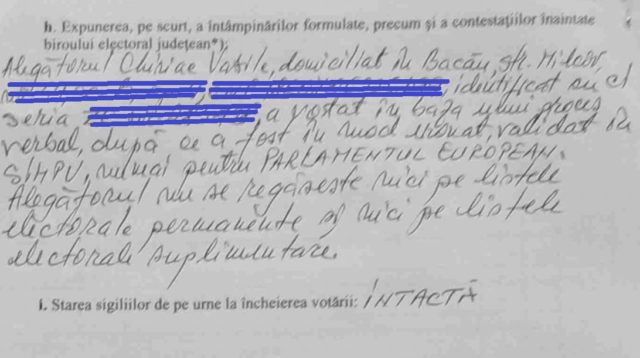 h. Expunerea, pe scurt, a întâmpinărilor formulate, precum și a contestațiilor înaintate
biroului electoral județean*);
Alegătorul Chiriac Vasile, domiciliat în Bacău, str. Milcov,
identificat cu CI
seria a votat în baza unui proces
verbal, după ce a fost în mod eronat, validat în
SIMPV, numai pentru PARLAMENTUL EUROPEAN.
Alegătorul nu se regăsește nici pe listele
electorale permanente și nici pe listele
electorale suplimentare.
i. Starea sigiliilor de pe urne la încheierea votării: INTACTĂ